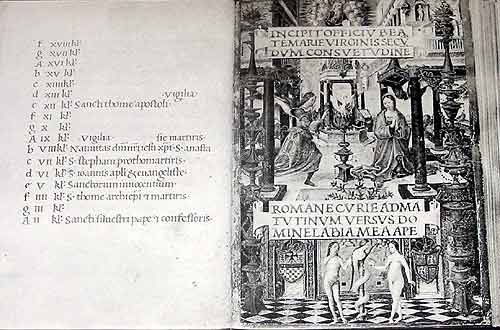 f xviii kl͞s
g xvii kl͞s
A xvi kl͞s
b xv kl͞s
c xiiii kl͞s
d xiii kl͞s ·vigilia·
e xii kl͞s Sancti thome apostoli·
f xi kl͞s
g x kl͞s
A ix kl͞s ·vigilia· sie martiris·
b viii kl͞s Nativitas
c vii kl͞s S· stephani prothomartiris·
d vi kl͞s S· ioannis apl͞i & evangeliste·
e v kl͞s Sanctorum innocentium·
f iiii kl͞s S· thome archiepi & martiris·
g iii kl͞s
A ii kl͞s Sancti silvestri pape & confessoris·
INCIPIT OFFICIV BEA
TE MARIE VIRGINIS SECV
DVM CONSVETVDINE
ROMANE CVRIE AD MA
TVTINVM VERSVS DO
MINE LABIA MEA APE